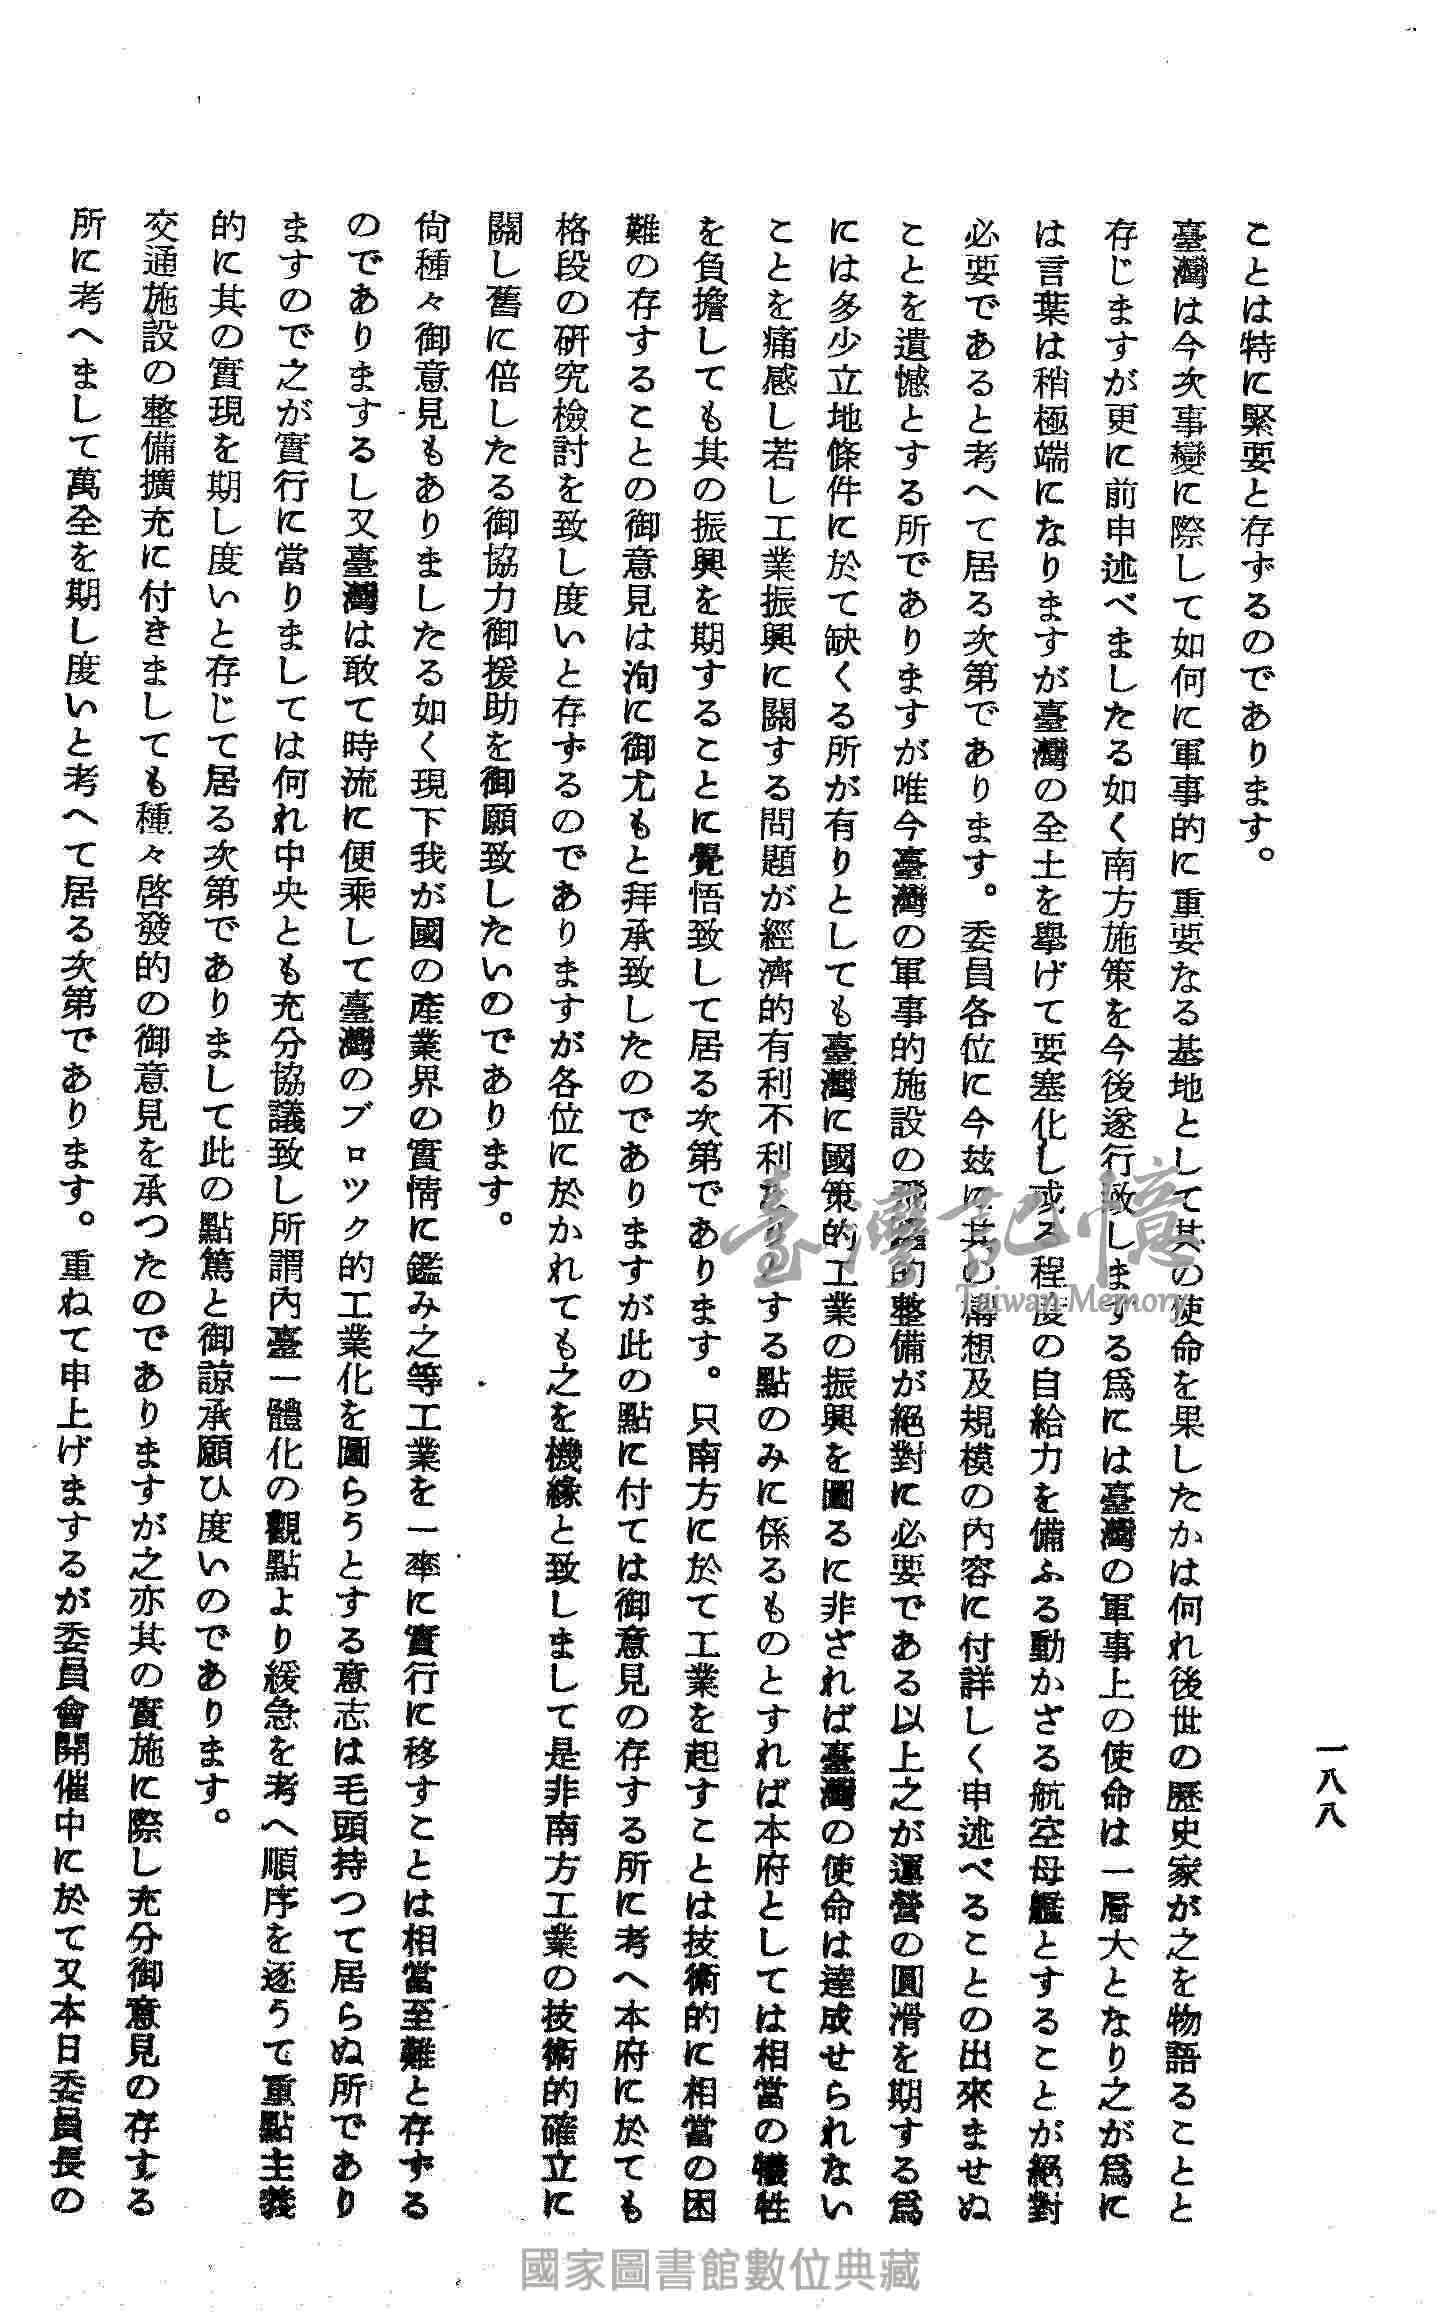 一八八
ことは特に緊要と存ずるのであります。
臺灣は今次事變に際して如何に軍事的に重要なる基地として其の使命を果したかは何れ後世の歷史家が之を物語ることと
存じますが更に前申述べましたる如く南方施策を今後遂行致しまする爲には臺灣の軍事上の使命は一層大となり之が爲に
は言葉は稍極端になりますが臺灣の全土を擧げて要塞化し或る程度の自給力を備ふる動かざる航空母艦とすることが絕對
必要であると考へて居る次第であります。委員各位に今玆に其の構想及規模の內容に付詳しく申述べることの出來ませぬ
ことを遺憾とする所でありますが唯今臺灣の軍事的施設の飛躍的整備が絕對に必要である以上之が運營の圓滑を期する爲
には多少立地條件に於て缺くる所が有りとしても臺灣に國策的工業の振興を圖るに非ざれば臺灣の使命は達成せられない
ことを痛感し若し工業振興に關する問題が經濟的有利不利なりとする點のみに係るものとすれば本府としては相當の犧牲
を負擔しても其の振興を期することに覺悟致して居る次第であります。只南方に於て工業を起すことは技術的に相當の困
難の存することの御意見は洵に御尤もと拜承致したのでありますが此の點に付ては御意見の存する所に考へ本府に於ても
格段の硏究檢討を致し度いと存ずるのでありますが各位に於かれても之を機緣と致しまして是非南方工業の技術的確立に
關し舊に倍したる御協力御援助を御願致したいのであります。
尙種々御意見もありましたる如く現下我が國の產業界の實情に鑑み之等工業を一率に實行に移すことは相當至難と存ずる
のでありまするし又臺灣は敢て時流に便乘して臺灣のブロック的工業化を圖らうとする意志は毛頭持つて居らぬ所であり
ますので之が實行に當りましては何れ中央とも充分協議致し所謂內臺一體化の觀點より緩急を考へ順序を逐うて重點主義
的に其の實現を期し度いと存じて居る次第でありまして此の點篤と御諒承願ひ度いのであります。
交通施設の整備擴充に付きましても種々啓發的の御意見を承つたのでありますが之亦其の實施に際し充分御意見の存する
所に考へまして萬全を期し度いと考へて居る次第であります。重ねて申上げまするが委員會開催中に於て又本日委員長の
臺灣記憶
Taiwan Memory
國家圖書館數位典藏